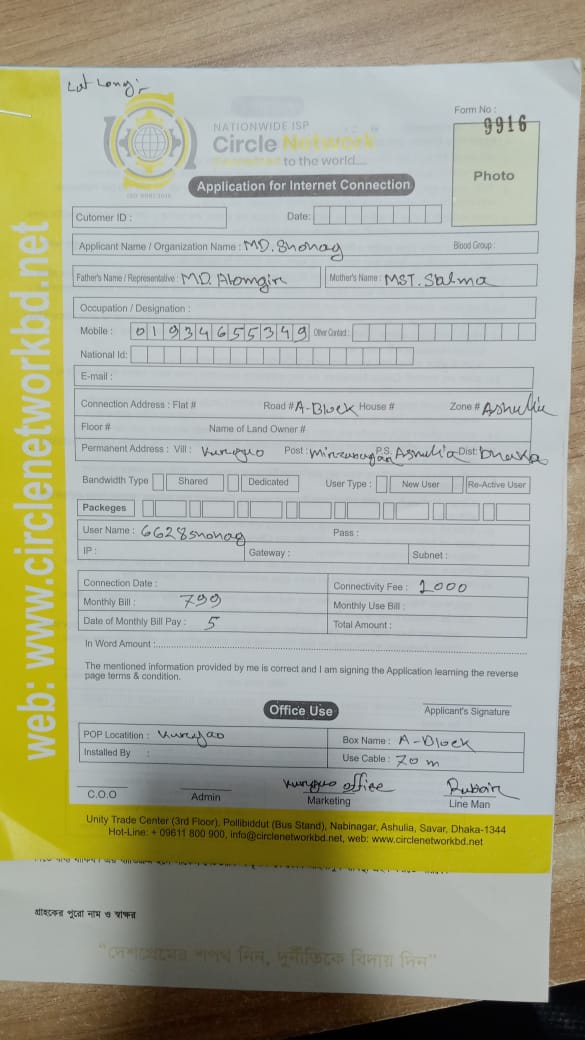 Lat Long:-
Form No :
9916
NATIONWIDE ISP
Circle Network
to the world....
ISO 9001:2015
Photo
Application for Internet Connection
Cutomer ID :
Date:
Applicant Name / Organization Name : MD. Shohag Blood Group :
Father's Name / Representative : MD. Alomgir Mother's Name : MST. Salma
Occupation / Designation :
Mobile : 01934655349 Other Contact :
National Id:
E-mail :
Connection Address : Flat # Road # A-Block House # Zone # Ashulia
Floor # Name of Land Owner #
Permanent Address : Vill : Post : P.S. Ashulia Dist: Dhaka
Bandwidth Type Shared Dedicated User Type : New User Re-Active User
Packeges
User Name : 6628shohag Pass :
IP : Gateway : Subnet :
Connection Date : Connectivity Fee : 1000
Monthly Bill : 799 Monthly Use Bill :
Date of Monthly Bill Pay : 5 Total Amount :
In Word Amount :
The mentioned information provided by me is correct and I am signing the Application learning the reverse
page terms & condition.
Applicant's Signature
Office Use
POP Locatition : Box Name : A-Block
Installed By : Use Cable : 70 m
office
C.O.O Admin Marketing Line Man
Unity Trade Center (3rd Floor), Pollibiddut (Bus Stand), Nabinagar, Ashulia, Savar, Dhaka-1344
Hot-Line: + 09611 800 900, info@circlenetworkbd.net, web: www.circlenetworkbd.net
web: www.circlenetworkbd.net
গ্রাহকের পুরো নাম ও স্বাক্ষর
"দেশপ্রেমের শপথ নিন, দুর্নীতিকে বিদায় দিন"